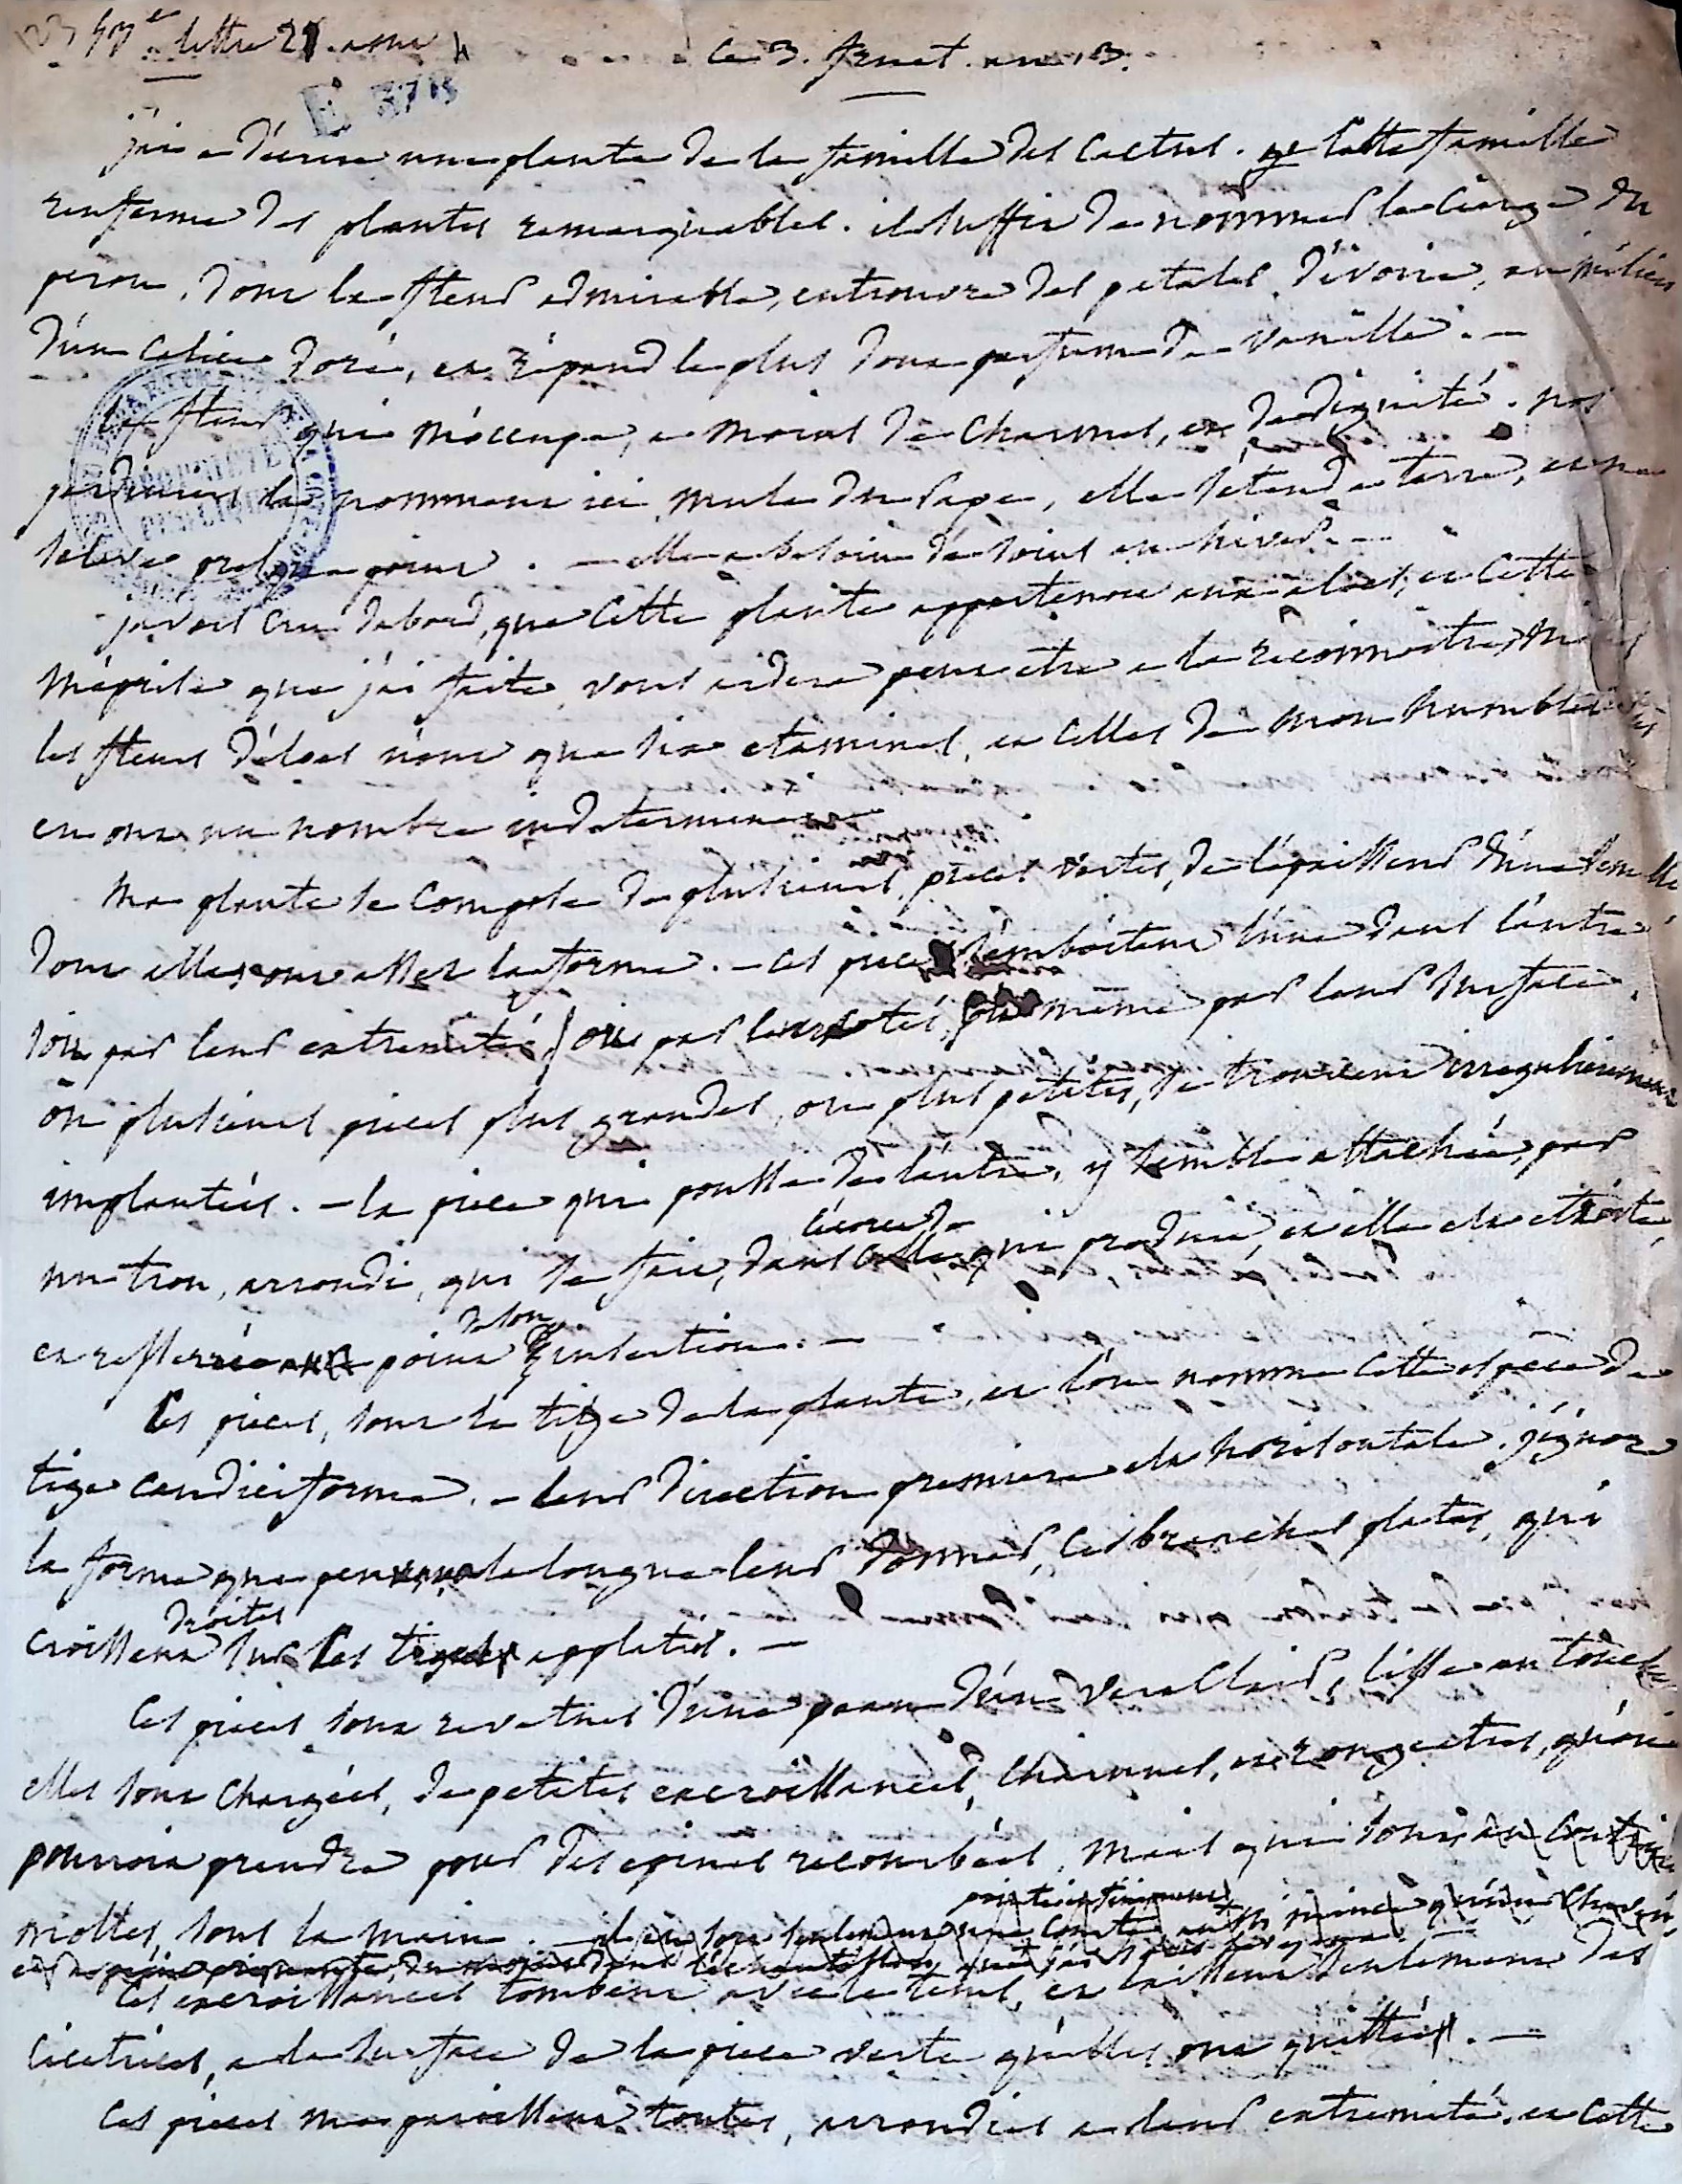 lettre 21.
ce 3. fruct. an 13.
E 3715
j'ai a décrire une plante de la famille des Cactus. cette famille
renferme des plantes remarquables. il suffit de nommer le Cierge du
perou, dont la fleur admirable, entrouvre des petales d'ivoire, au milieu
d'un calice doré, et répand le plus doux parfum de vanille. —
la fleur qui m'occupe, a moins de charmes, et de dignité. nos
jardiniers la nomment ici mule du pape, elle s'étend a terre, et ne
s'eleve presque point. — elle a besoin de soins en hiver. —
j'avois cru d'abord, que cette plante appartenoit aux aloes, et cette
méprise que j'ai faite, vous aidera peut etre a la reconnoitre, mais
les fleurs d'aloes n'ont que six etamines, et celles de mon humble
en ont un nombre indeterminé
ma plante se compose de plusieurs pieces vertes, de l'epaisseur d'une semelle
dont elles ont assez la forme. — ces pieces s'emboitent l'une dans l'autre
soit par leur extremité, soit par leurs cotés, soit même par leur surface,
ou plusieurs pieces plus grandes, ou plus petites, se trouvent irregulierement
implantées. — la piece qui pousse de l'autre, y semble attachée, par
un trou, arrondi, qui se fait, dans celle qui produit, et elle est etroite,
l'écorce de
et resserrée au point d'insertion. —
de son
Ces pieces, sont la tige de la plante, et l'on nomme cette espece de
tige caudiciforme. — leur direction premiere est horisontale. j'ignore
la forme que peut a la longue leur donner, ces branches plates, qui
croissent sur les tiges applaties. —
droites
Ces pieces sont revetues d'une peau d'un verd clair, lisse au toucher
elles sont chargées, de petites excroissances, charnues, et rougeatres, qu'on
pourroit prendre pour des epines recourbées, mais qui sont au contraire
molles, sous la main.
Ces excroissances tombent avec le tems, et laissent seulement des
cicatrices, a la surface de la piece verte qu'elles ont quittée. —
Ces pieces me paroissent toutes, arrondies a leur extremité, et cette